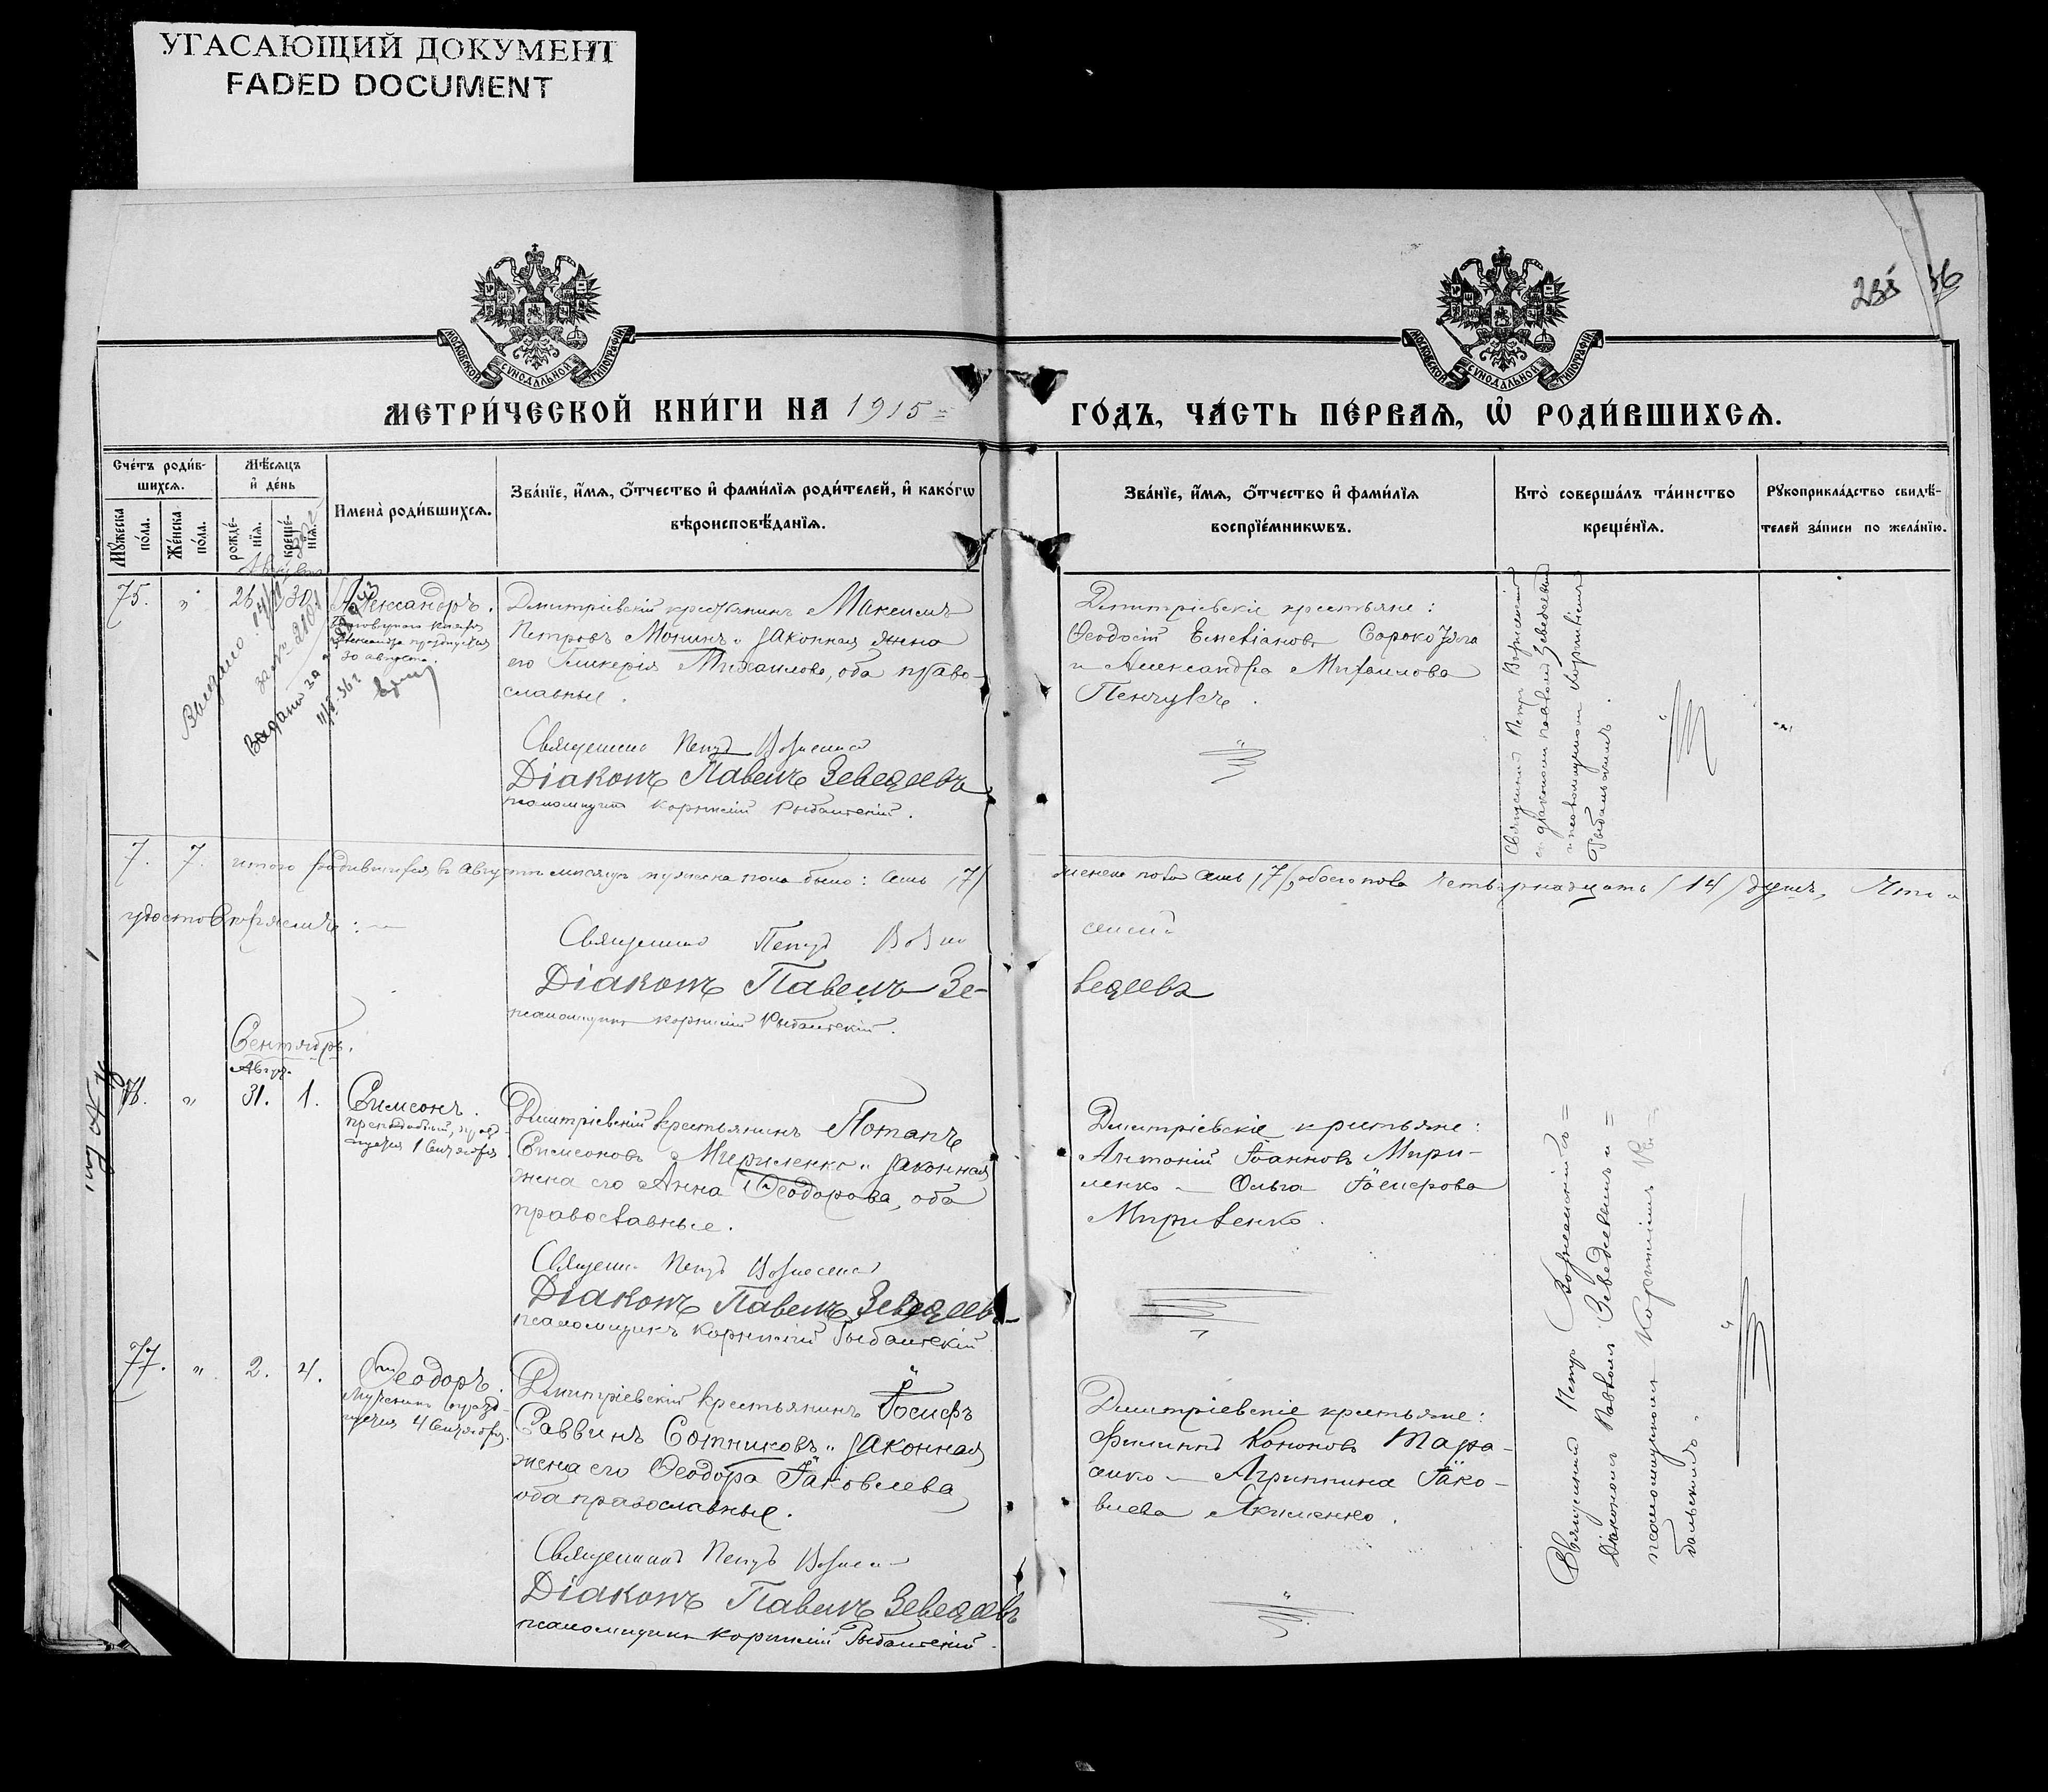 УГАСАЮЩИЙ ДОКУМЕНТ
FADED DOCUMENT
235 36
МОСКОВСКОЙ СѴНОДАЛЬНОЙ ТИПОГРАФІИ
МОСКОВСКОЙ СѴНОДАЛЬНОЙ ТИПОГРАФІИ
МЕТРИ́ЧЕСКОЙ КНИ́ГИ НА 1915
ГО́ДЪ, ЧА́СТЬ ПЕ́РВАѦ, Ѡ҆ РОДИ́ВШИХСѦ.
Сче́тъ роди́в-
шихсѧ.
Мѣ́сѧцъ
и҆ де́нь
Мꙋ́жеска по́ла.
Же́нска по́ла.
рожде́-
нїѧ.
креще́-
нїѧ.
И҆мена̀ роди́вшихсѧ.
Зва́нїе, и҆́мѧ, ѻ҆́тчество и҆ фами́лїѧ роди́телей, и҆ како́гѡ
вѣроисповѣ́данїѧ.
Зва́нїе, и҆́мѧ, ѻ҆́тчество и҆ фами́лїѧ
воспрїе́мникѡвъ.
Кто̀ соверша́лъ та́инство
креще́нїѧ.
Рꙋкоприкла́дство свидѣ́-
телей за́писи по жела́нїю.
Августъ
75. " 26 30
Александръ.
Благовѣрнаго Князя
Александра празднуется
30 августа.
Выдано
за №
Выдано за №
Дмитріевскій крестьянинъ Максимъ
Петровъ Монинъ и законная жена
его Гликерія Михаилова, оба право-
славные.
Священникъ Петръ Вознесенскій
Діаконъ Павелъ Зеведеевъ
псаломщикъ Корнилій Рыбальскій.
Дмитріевскіе крестьяне:
Ѳеодосій Емеліановъ Сорокоу
и Александра Михаилова
Пенчукъ.
Священникъ Петръ Вознесенскій
съ діакономъ Павломъ Зеведеевымъ
и псаломщикомъ Корниліемъ
Рыбальскимъ.
7. 7. итого родившихся въ августѣ мѣсяцѣ мужеска пола было: семь /7/
женска пола семь /7/, обоего пола четырнадцать /14/ душъ, Что и
удостовѣряемъ:
Священникъ Петръ Возне
сенскій
Діаконъ Павелъ Зе-
ведеевъ
псаломщикъ Корнилій Рыбальскій.
Сентябрь.
Август.
76. " 31. 1.
Симеонъ.
преподобный, празд-
нуется 1 Сентября
Дмитріевскій крестьянинъ Потапъ
Симеоновъ Мириленко и законная
жена его Анна Ѳеодорова, оба
православные.
Священникъ Петръ Вознесенскій
Діаконъ Павелъ Зеведеевъ
псаломщикъ Корнилій Рыбальскій
Дмитріевскіе крестьяне:
Антоній Іоанновъ Мири-
ленко и Ольга Іосифова
Мириленко.
77. " 2. 4.
Ѳеодоръ.
Мученикъ празд-
нуется 4 Сентября.
Дмитріевскій крестьянинъ Іосифъ
Саввинъ Сотниковъ и законная
жена его Ѳеодора Іаковлева
оба православные.
Священникъ Петръ Вознесен
Діаконъ Павелъ Зеведеевъ
псаломщикъ Корнилій Рыбальскій.
Дмитріевскіе крестьяне:
Филиппъ Кононовъ Тара-
сенко и Агриппина Іако-
влева Якименко.
Священникъ Петръ Вознесенскій съ
Діакономъ Павломъ Зеведеевымъ и
псаломщикомъ Корниліемъ Ры-
бальскимъ.